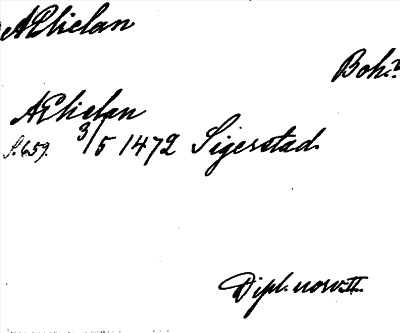 AEhielan
Boh.?
AEhielan
S. 659. 3/5 1472 Sigerstad.
Dipl. norv. II.